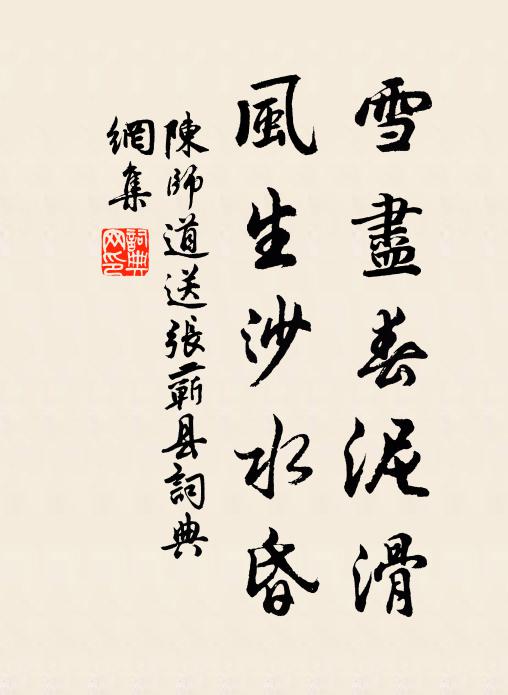 雪盡春泥滑
風生沙水昏
陳師道送張蘄县詞典
網集
詞典
网印